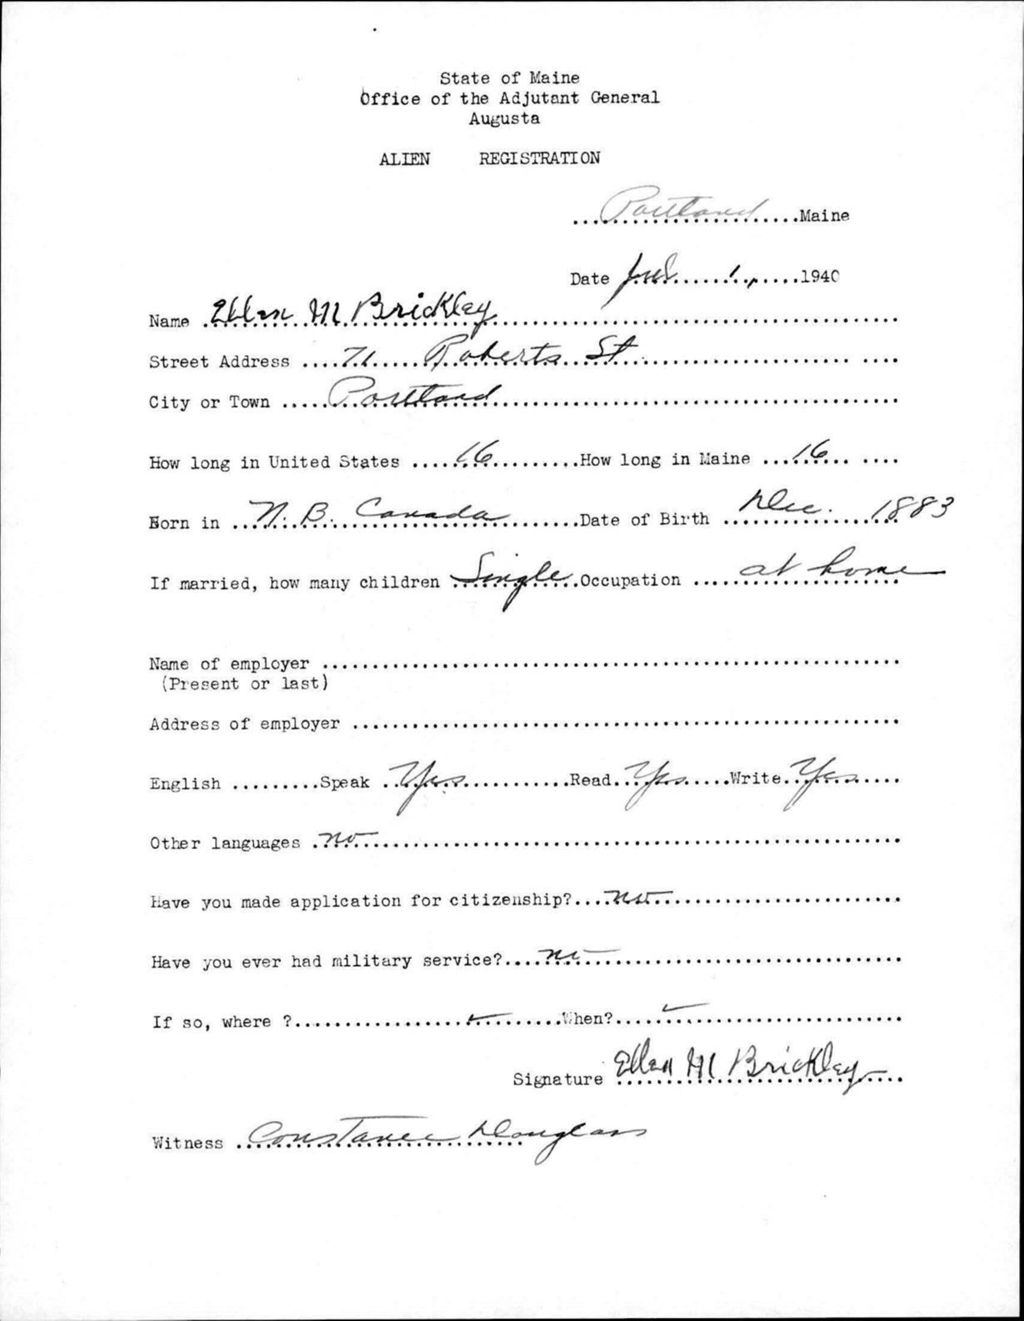 State of Maine
Office of the Adjutant General
Augusta
ALIEN REGISTRATION
...Portland...Maine
Date ...1...1940
Name ...Ellen M Brickley...
Street Address ...71 Roberts St...
City or Town ...Portland...
How long in United States ...16...How long in Maine ...16...
Born in ...N. B. Canada...Date of Birth ...Dec. 1883
If married, how many children ...Single...Occupation ...at home
Name of employer ...
(Present or last)
Address of employer ...
English ...Speak ...Yes...Read...Yes...Write...Yes...
Other languages ...no...
Have you made application for citizenship?...no...
Have you ever had military service?...no...
If so, where ?...When?...
Signature ...Ellen M Brickley...
Witness ...Constance Douglass